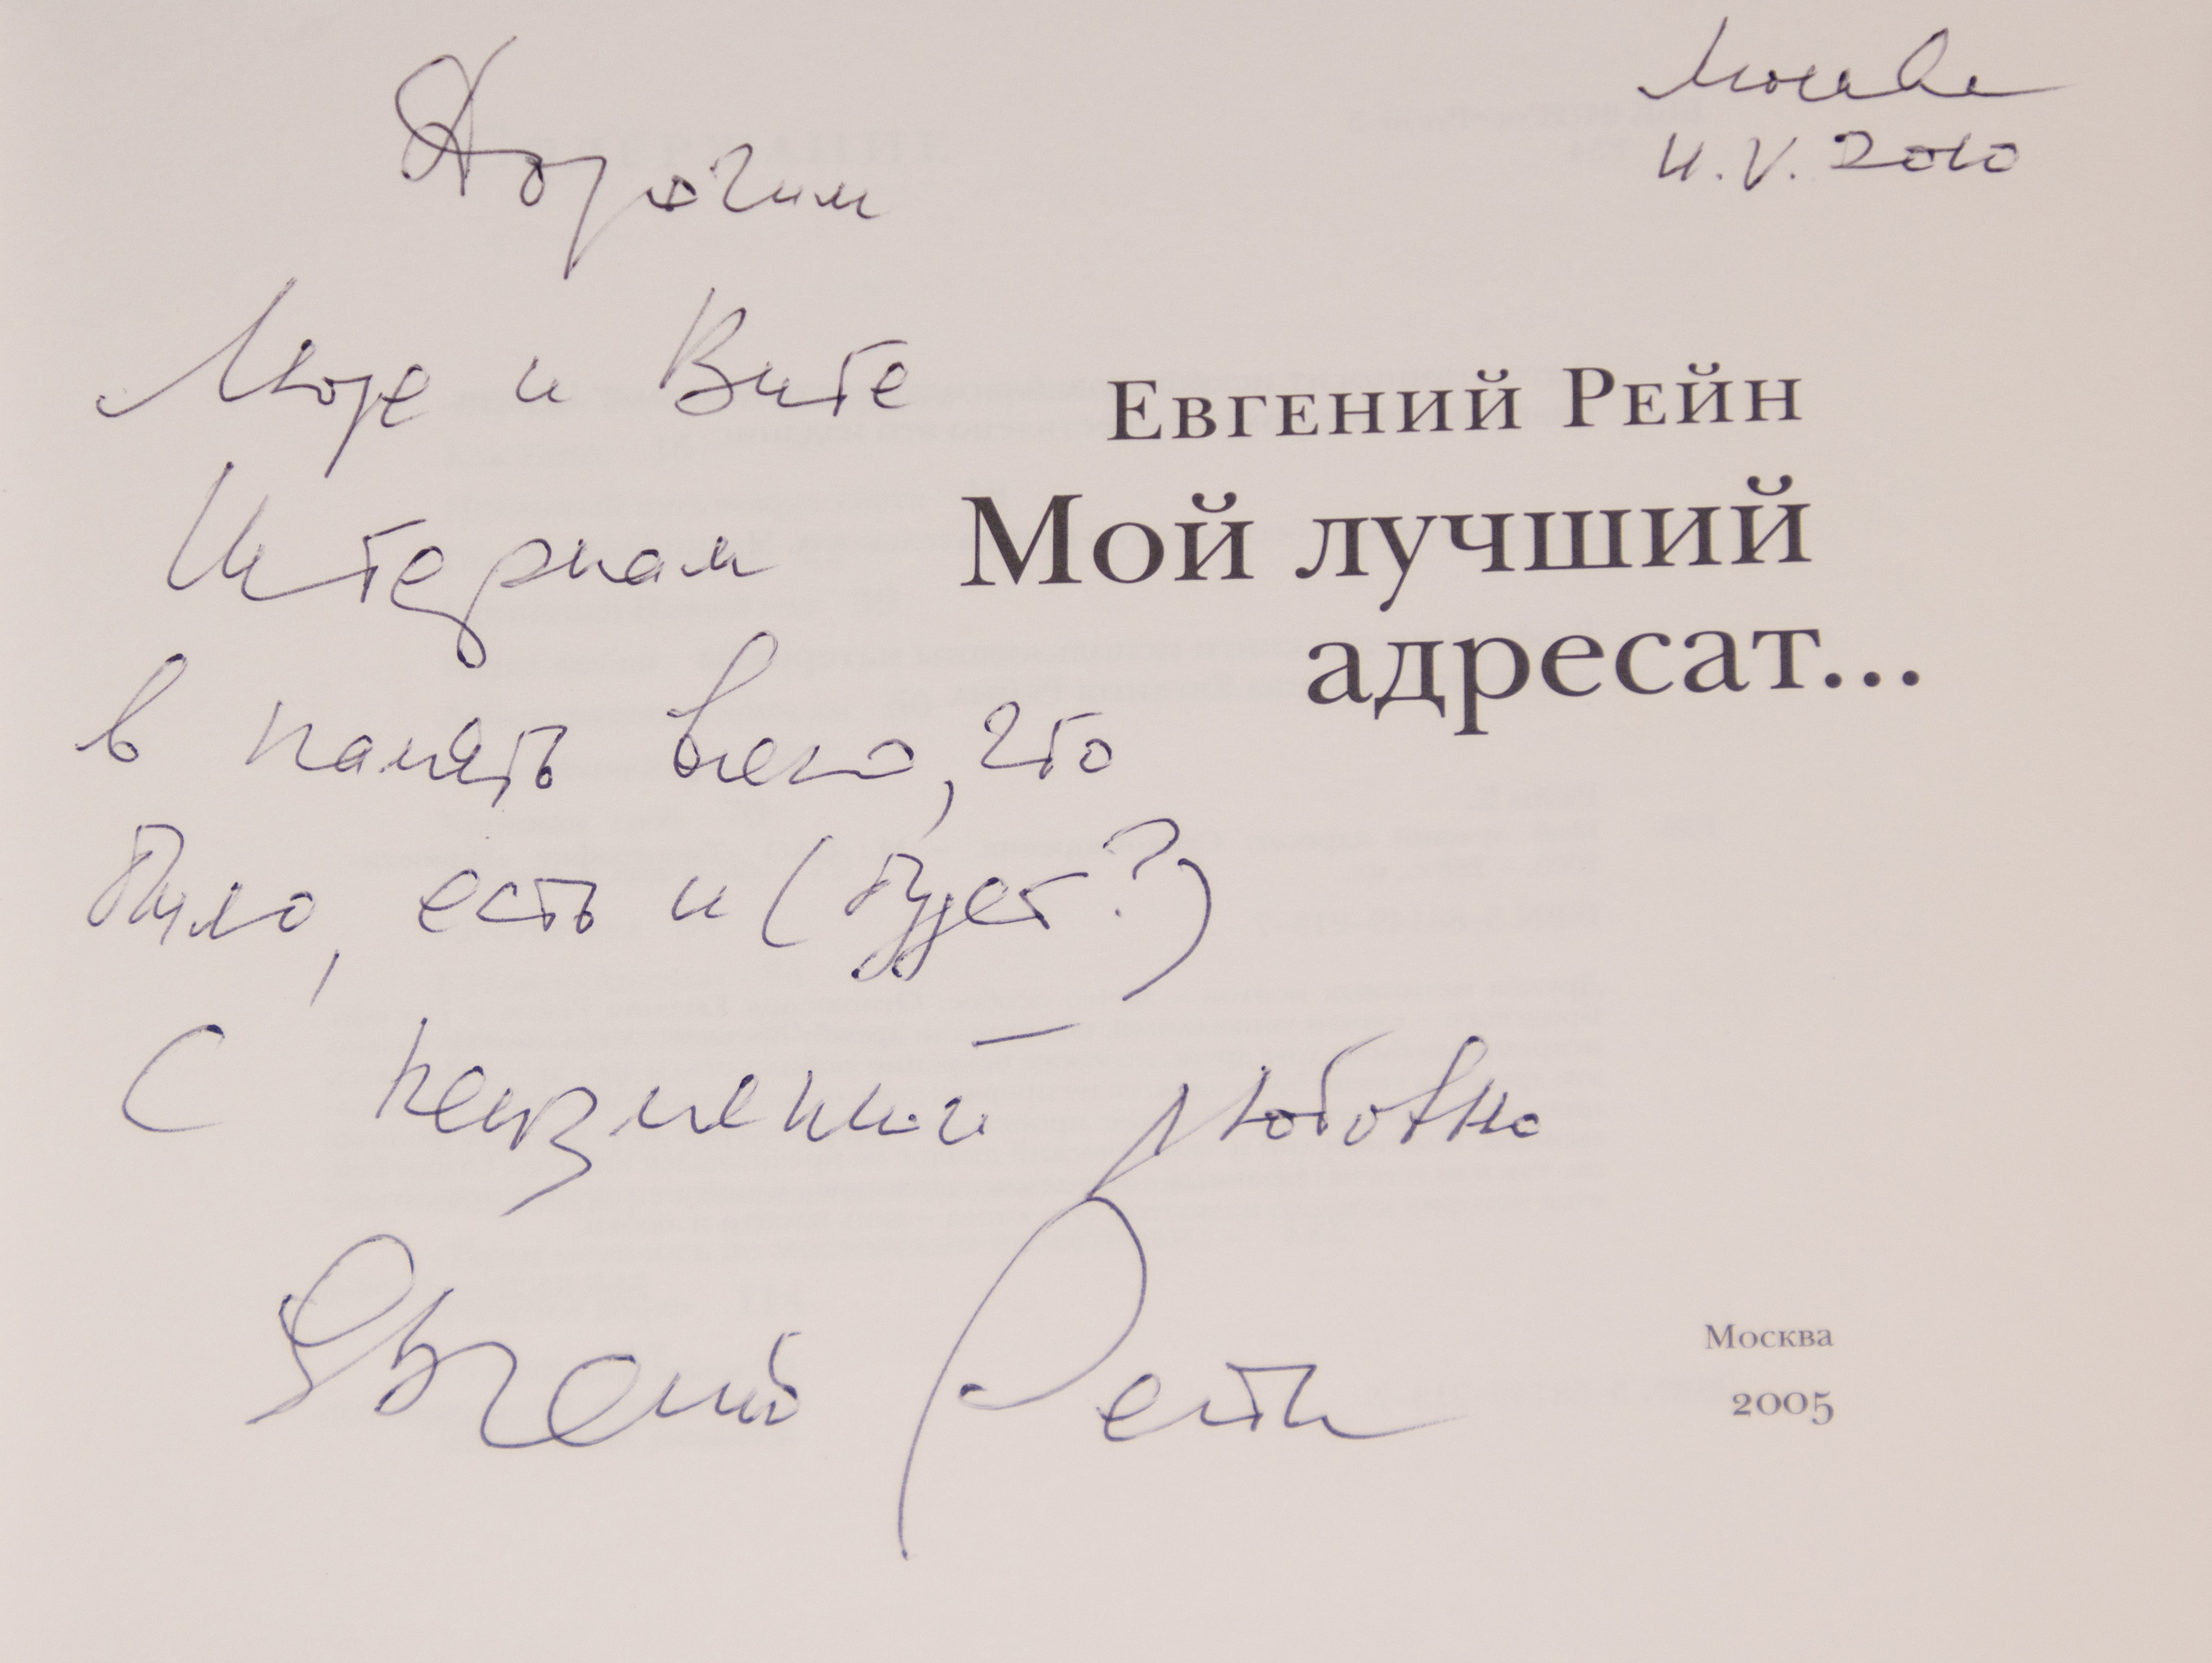 Москва
11.V.2010
Дорогим
Люде и Вите
Штернам
в память всего, что
было, есть и (будет?)
С неизменной любовью
Евгений Рейн
Евгений Рейн
Мой лучший
адресат...
Москва
2005